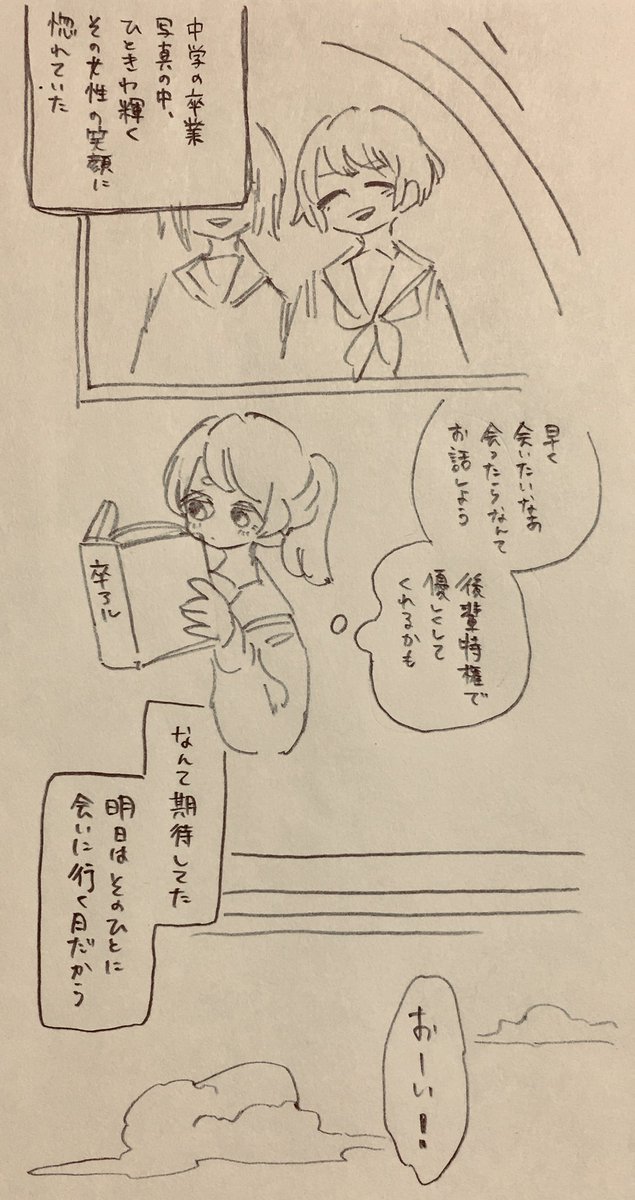 中学の卒業
写真の中、
ひときわ輝く
その女性の笑顔に
惚れていた
早く
会いたいなあ
会ったらなんて
お話しよう
後輩特権で
優しくして
くれるかも
卒アル
なんて期待してた
明日はそのひとに
会いに行く日だから
おーい！